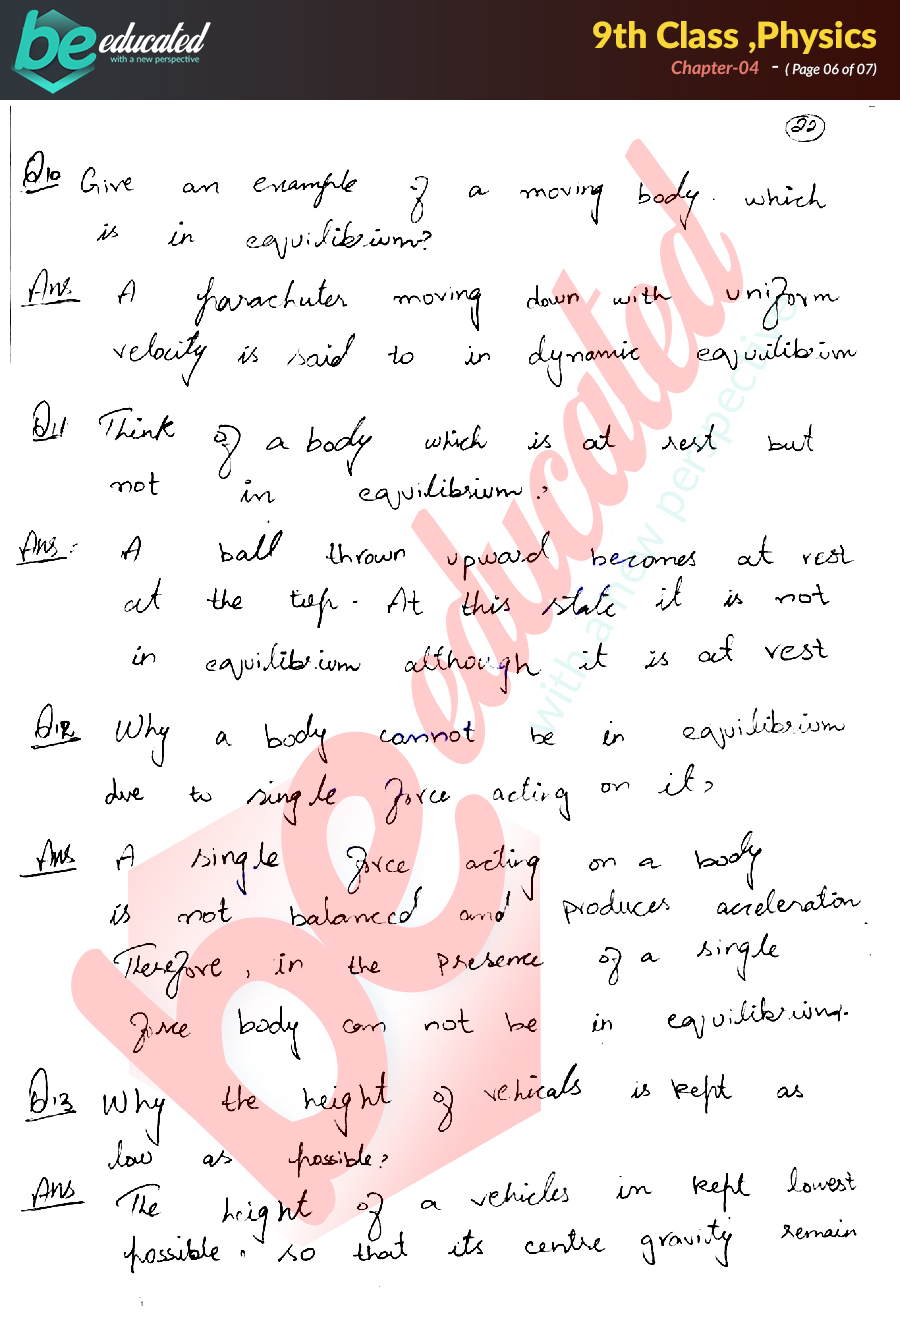 be educated
with a new perspective
9th Class ,Physics
Chapter-04 - ( Page 06 of 07)
22
Q10 Give an example of a moving body. which
is in equilibrium?
Ans A parachuter moving down with uniform
velocity is said to in dynamic equilibrium
Q11 Think of a body which is at rest but
not in equilibrium?
Ans: A ball thrown upward becomes at rest
at the top. At this state it is not
in equilibrium although it is at rest
Q12 Why a body cannot be in equilibrium
due to single force acting on it?
Ans A single force acting on a body
is not balanced and produces acceleration
Therefore, in the presence of a single
force body can not be in equilibrium.
Q13 Why the height of vehicals is kept as
low as possible?
Ans The height of a vehicles in kept lowest
possible. so that its centre gravity remain
be educated
with a new perspective